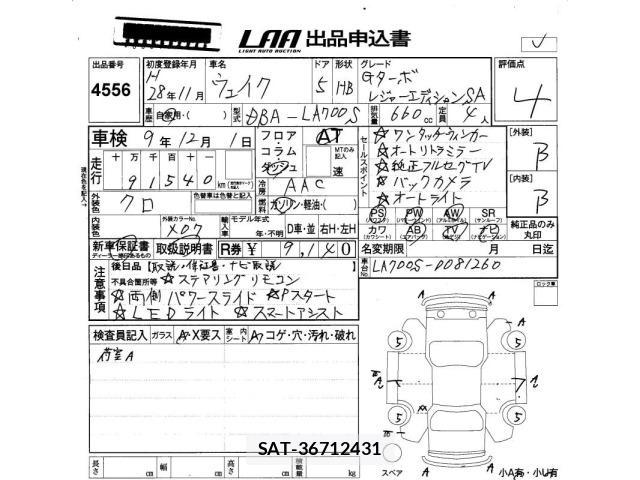 LAA 出品申込書
LIGHT AUTO AUCTION
出品番号 初度登録年月 車名 ドア 形状 グレード 評価点
4556 H 28年11月 ウェイク 5 HB Gターボ
レジャーエディションSA 4
車歴 自家用・( ) 型式 DBA-LA700S 排気量 660cc 定員 4人
車検 9年12月1日 フロア・コラム・ダッシュ AT
MTのみ記入 速
走行 十万千百十一
91540 km
冷房 AAC
燃料 ガソリン・軽油・( )
セールスポイント
☆ワンタッチウィンカー
☆オートリトラミラー
☆純正フルセグTV
☆バックカメラ
☆オートライト
[外装] B
[内装] B
外装色 クロ 色替車は色替と記入
外装カラーNo. X07
輸入車 モデル年式 年・不明 D車・並 右H・左H
PS PW AW SR
カワ AB TV ナビ
純正品のみ丸印
新車保証書 取扱説明書 R券 ¥ 9,140
名変期限 月 日迄
車台No. LA700S-0081260
注意事項
後日品 [取説・保証書・ナビ取説]
不具合箇所等 ☆ステアリングリモコン
☆両側パワースライド ☆Pスタート
☆LEDライト ☆スマートアシスト
ロック車
検査員記入 ガラス A・X要ス 室内シート A コゲ・穴・汚れ・破れ
荷室A
A A
5 5
A
5 5
A A
SAT-36712431
長さ cm 幅 cm 高さ cm 積載量 kg
スペア 小A有・小U有